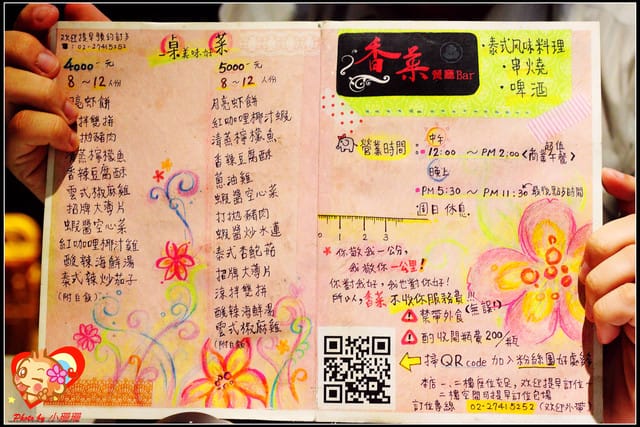 欢迎提早預約訂桌
☎:02-27415252
桌菜
美味好
4000-元
8～12人份
月亮蝦餅
涼拌雙拼
打拋豬肉
清蒸檸檬魚
香辣豆腐酥
雲式椒麻雞
招牌大薄片
蝦醬空心菜
紅咖哩椰汁雞
酸辣海鮮湯
泰式辣炒茄子
(附白飯)
5000-元
8～12人份
月亮蝦餅
紅咖哩椰汁蝦
清蒸檸檬魚
香辣豆腐酥
蔥油雞
蝦醬空心菜
打拋豬肉
蝦醬炒水蓮
泰式杏鮑菇
招牌大薄片
涼拌雙拼
酸辣海鮮湯
雲式椒麻雞
(附白飯)
香菜
餐廳Bar
•泰式风味料理
•串燒
•啤酒
營業時間:
中午
12:00 ～PM 2:00
晚上
PM 5:30 ～PM 11:30
週日休息.
1 2 3
你敬我一公分,
我敬你一公里!
你對我好,我也對你好!
所以,香菜不收你服務費!!!
禁帶外食(無誤!)
酌收開瓶費200/瓶
掃QR code 加入粉絲團好處多
本店一、二樓座位充足,欢迎提早訂位
二樓空間可提早訂位包場
訂位專線 02-27415252 (欢迎外帶)
Photo by 小珊珊